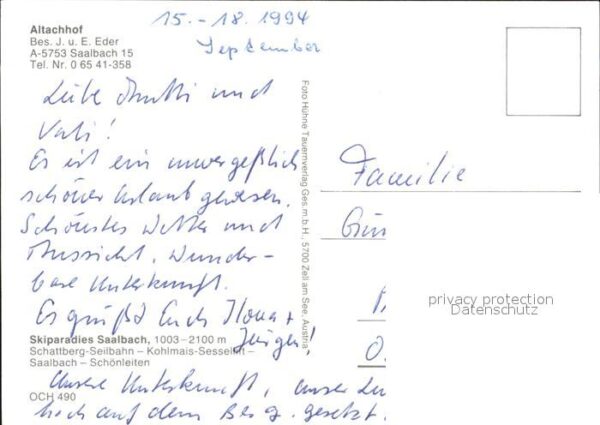 15. - 18. 1994
September
Altachhof
Bes. J. u. E. Eder
A-5753 Saalbach 15
Tel. Nr. 0 65 41-358
Liebe Mutti und
Vati!
Es ist ein unvergeßlich
schöner Urlaub gewesen.
Schönstes Wetter und
Aussicht. Wunder-
bare Unterkunft.
Es grüßt Euch Ilona +
Jürgen!
Skiparadies Saalbach, 1003-2100 m
Schattberg-Seilbahn – Kohlmais-Sessellift –
Saalbach – Schönleiten
Unsere Unterkunft, unser
hoch auf dem Berg. gesetzt.
OCH 490
Foto Hühne Tauernverlag Ges.m.b.H., 5700 Zell am See, Austria
Familie
Gün
O.
privacy protection
Datenschutz